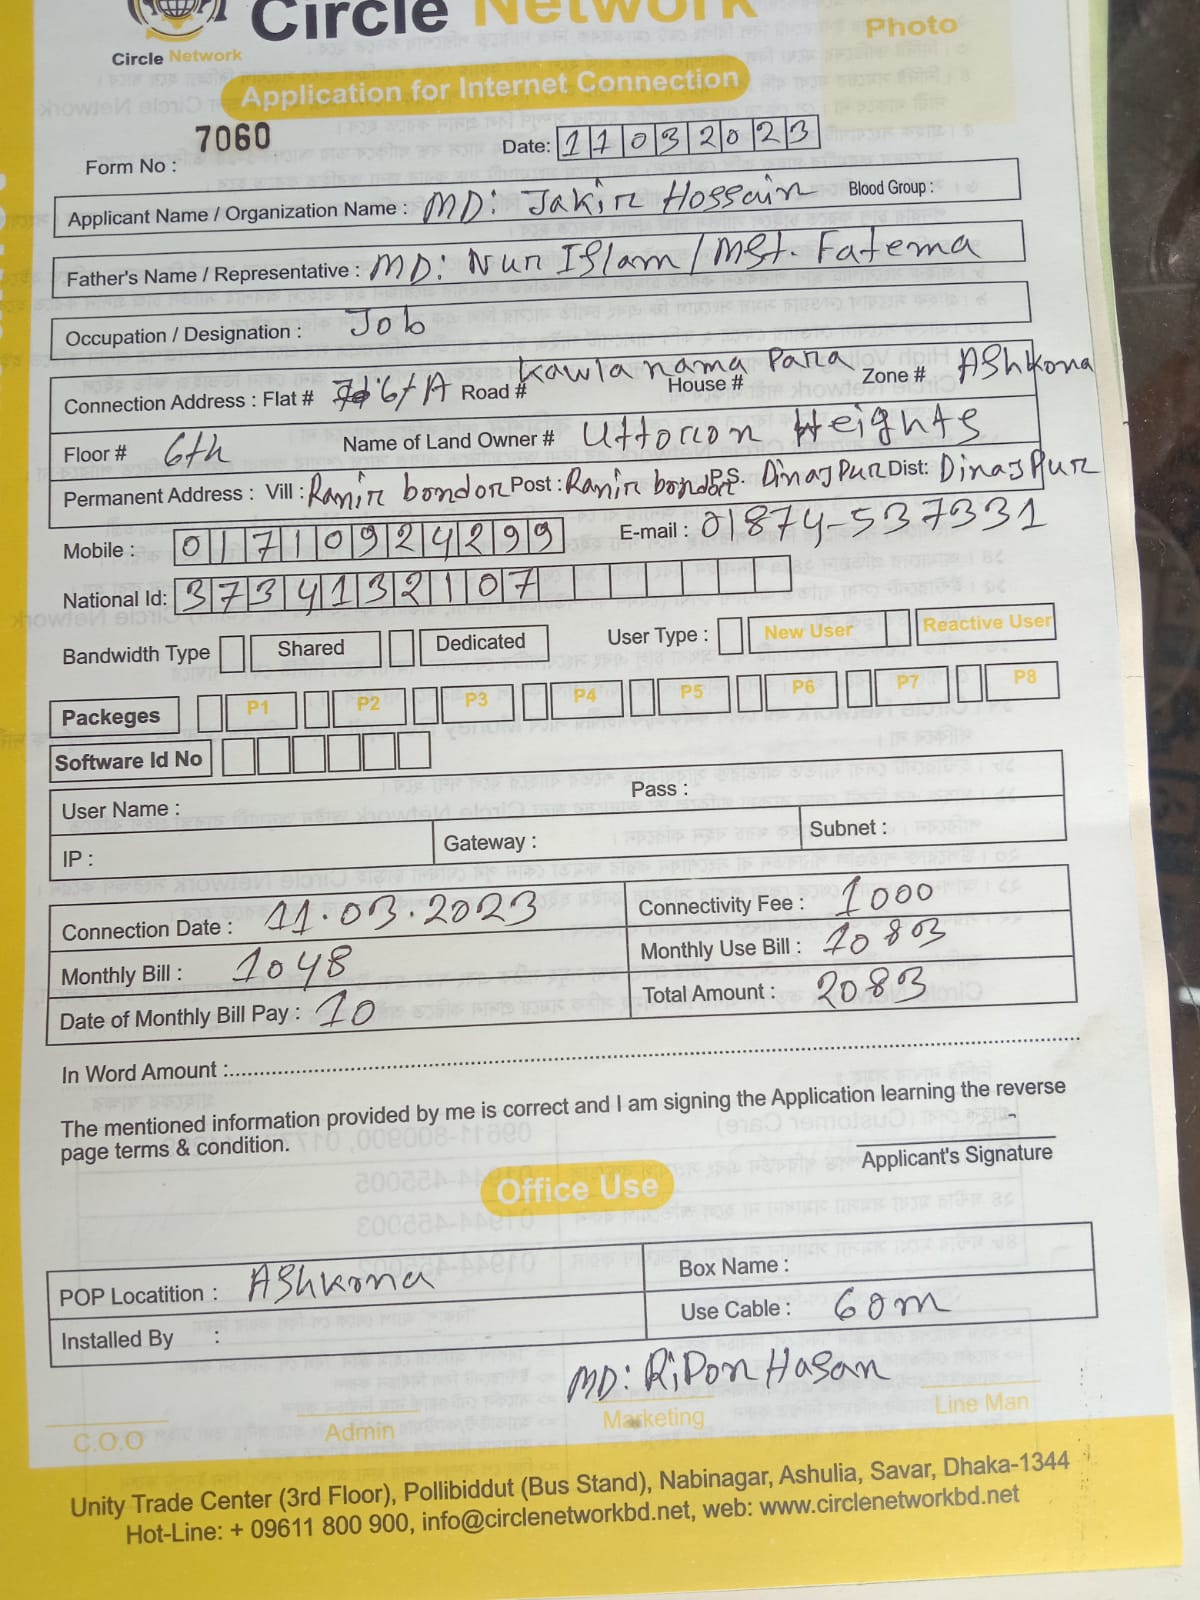 Circle Network
Circle Network
Photo
Application for Internet Connection
Form No : 7060
Date: 11032023
Applicant Name / Organization Name : MD: Jakir Hossain Blood Group :
Father's Name / Representative : MD: Nur Islam / Mst. Fatema
Occupation / Designation : Job
Connection Address : Flat # 6/A Road # House # Kawla nama Para Zone # AShkona
Floor # 6th Name of Land Owner # Uttoron Heights
Permanent Address : Vill : Ranir bondor Post : Ranir bondor P.S. DinajPur Dist: DinajPur
Mobile : 01710924299 E-mail : 01874-537331
National Id: 3734132107
Bandwidth Type Shared Dedicated User Type : New User Reactive User
Packeges P1 P2 P3 P4 P5 P6 P7 P8
Software Id No
User Name : Pass :
IP : Gateway : Subnet :
Connection Date : 11.03.2023 Connectivity Fee : 1000
Monthly Bill : 1048 Monthly Use Bill : 1083
Date of Monthly Bill Pay : 10 Total Amount : 2083
In Word Amount :
The mentioned information provided by me is correct and I am signing the Application learning the reverse
page terms & condition.
Applicant's Signature
Office Use
POP Locatition : AShkona Box Name :
Installed By : Use Cable : 60m
MD: RiPon Hasan
C.O.O Admin Marketing Line Man
Unity Trade Center (3rd Floor), Pollibiddut (Bus Stand), Nabinagar, Ashulia, Savar, Dhaka-1344
Hot-Line: + 09611 800 900, info@circlenetworkbd.net, web: www.circlenetworkbd.net